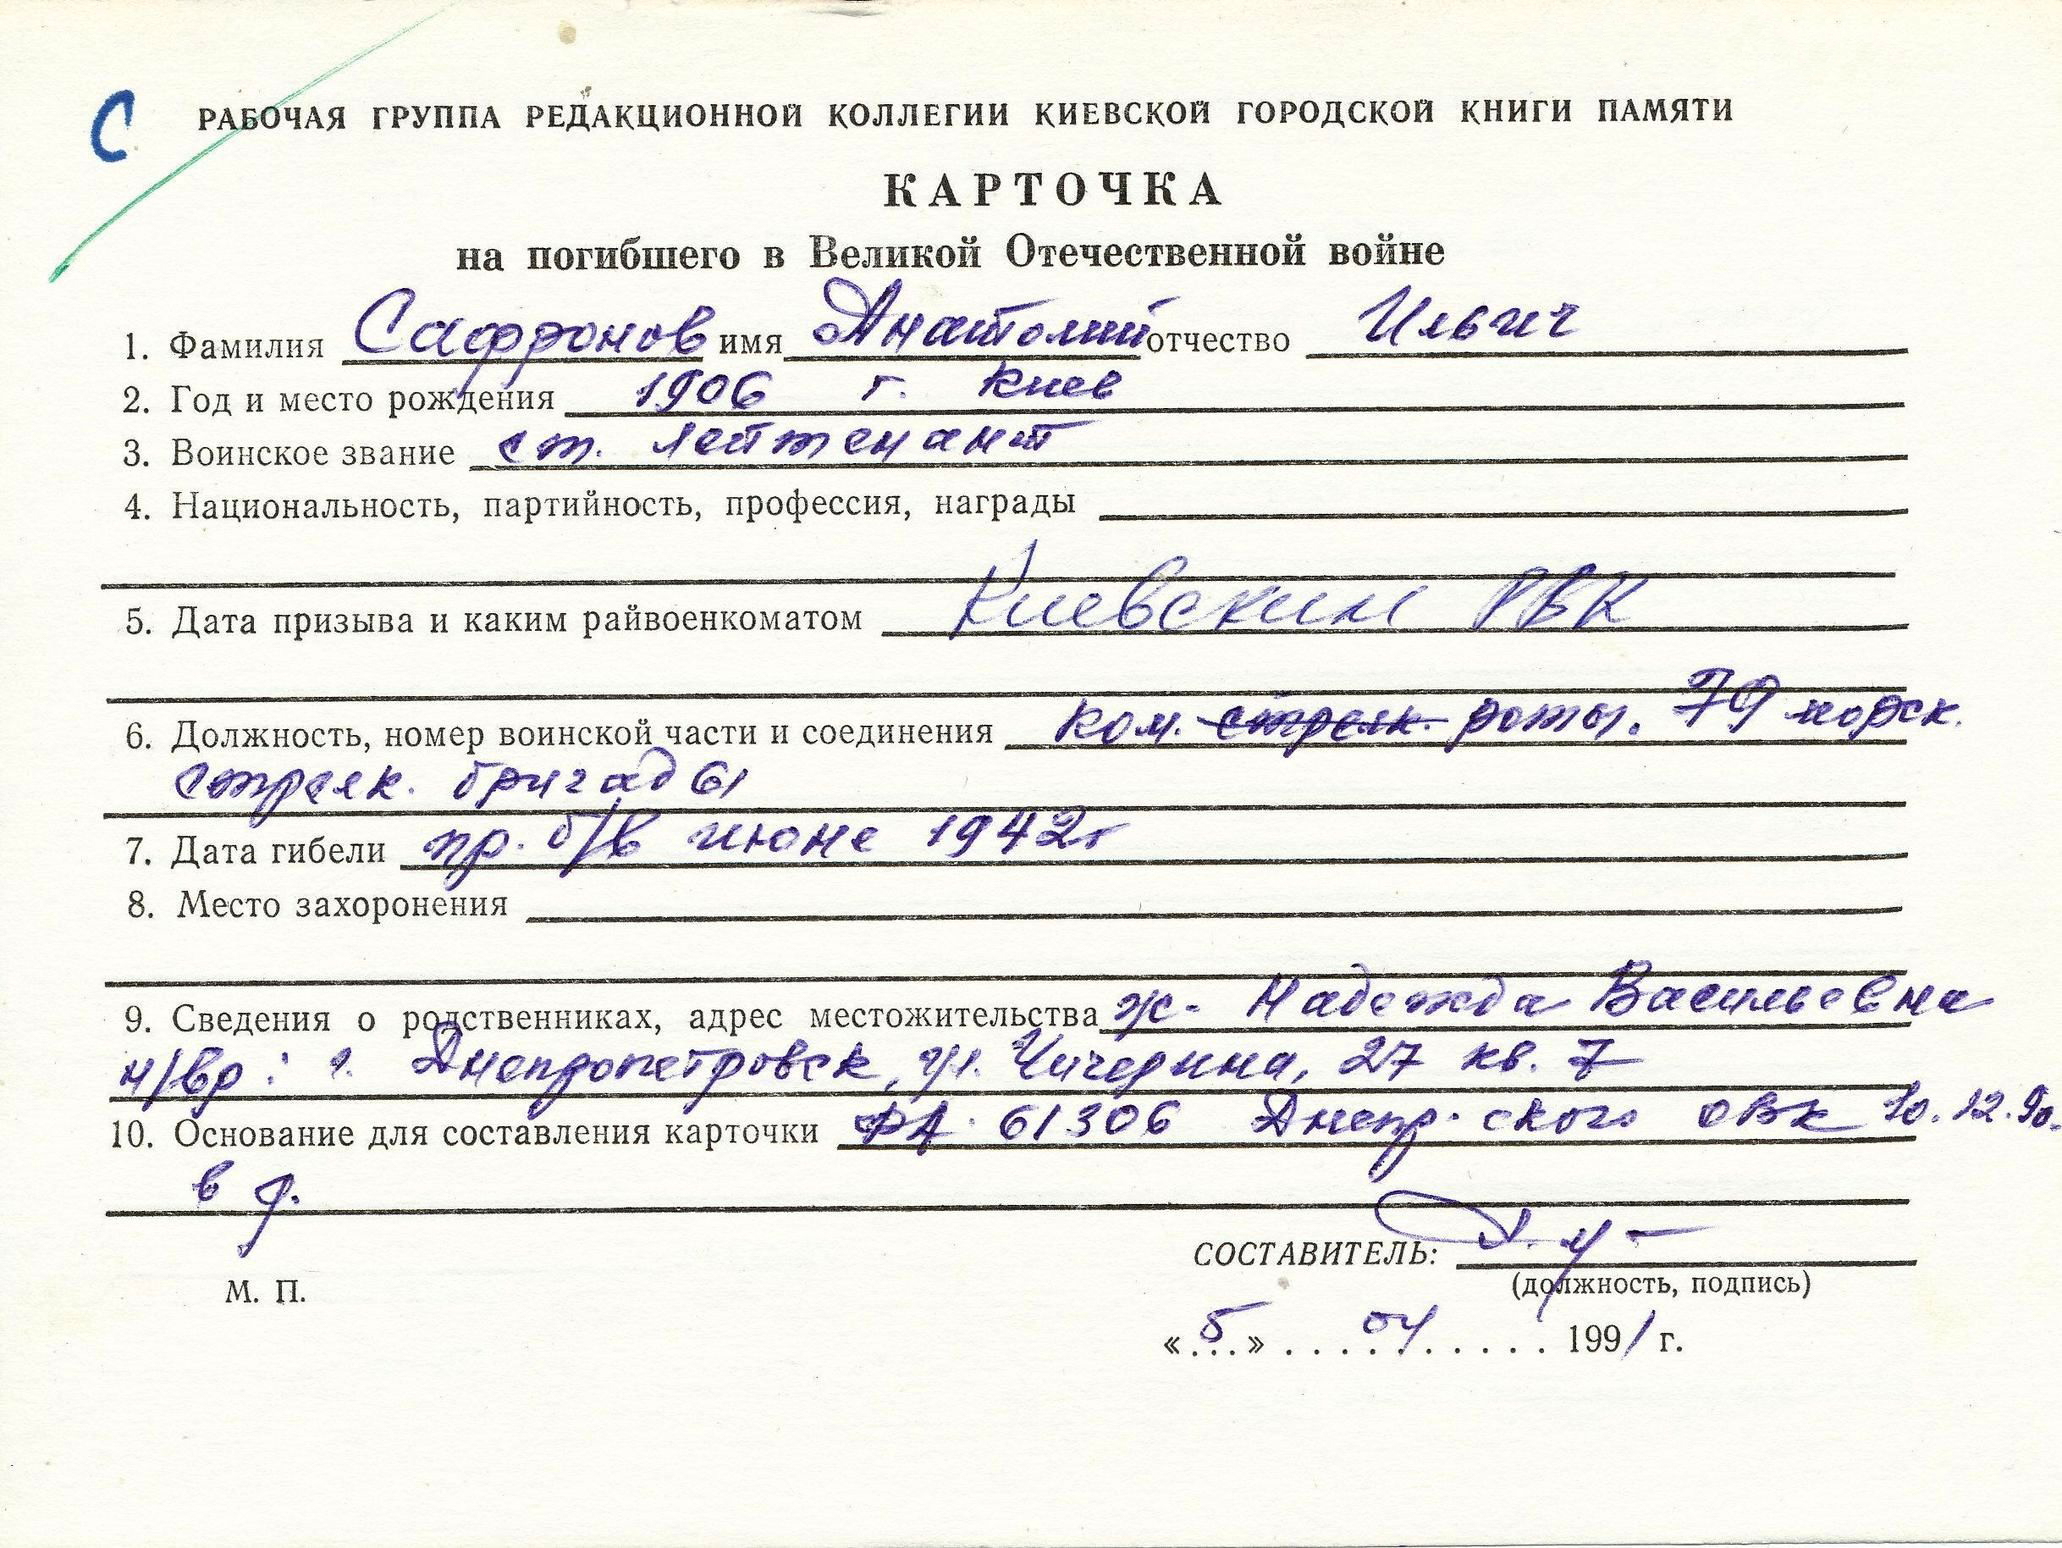 С
РАБОЧАЯ ГРУППА РЕДАКЦИОННОЙ КОЛЛЕГИИ КИЕВСКОЙ ГОРОДСКОЙ КНИГИ ПАМЯТИ
КАРТОЧКА
на погибшего в Великой Отечественной войне
1. Фамилия Сафронов имя Анатолий отчество Ильич
2. Год и место рождения 1906 г. Киев
3. Воинское звание ст. лейтенант
4. Национальность, партийность, профессия, награды
5. Дата призыва и каким райвоенкоматом Киевским РВК
6. Должность, номер воинской части и соединения ком. стрелк. роты. 79 морск.
стрелк. бригады
7. Дата гибели пр. б/в июне 1942г
8. Место захоронения
9. Сведения о родственниках, адрес местожительства ж. Надежда Васильевна
н/вр: г. Днепропетровск, ул. Чичерина, 27 кв. 7
10. Основание для составления карточки 61306 Днепр. ского ОВК 10.12.90.
в д.
СОСТАВИТЕЛЬ:
(должность, подпись)
М. П.
«5» 04 1991 г.